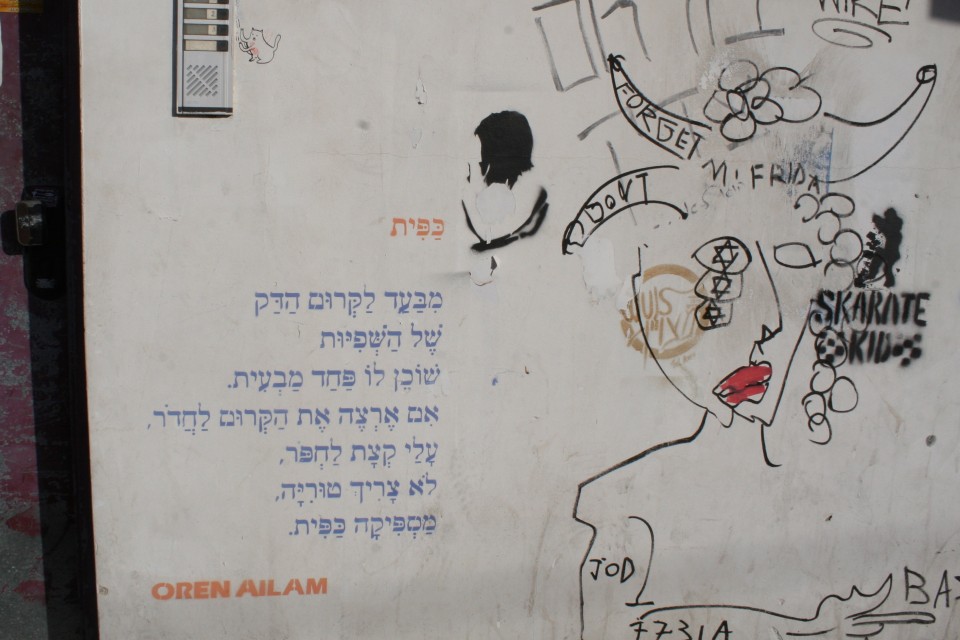 כַּפִּית
מִבַּעַד לַקְּרוּם הַדַּק
שֶׁל הַשְּׁפִיּוּת
שׁוֹכֵן לוֹ פַּחַד מַבְעִית.
אִם אֶרְצֶה אֶת הַקְּרוּם לַחְדֹר,
עָלַי קְצָת לַחְפֹּר,
לֹא צָרִיךְ טוּרִיָּה,
מַסְפִּיקָה כַּפִּית.
OREN AILAM
WIRE!
FORGET
M. FRIDA
DONT
SKARATE
KID
JOD